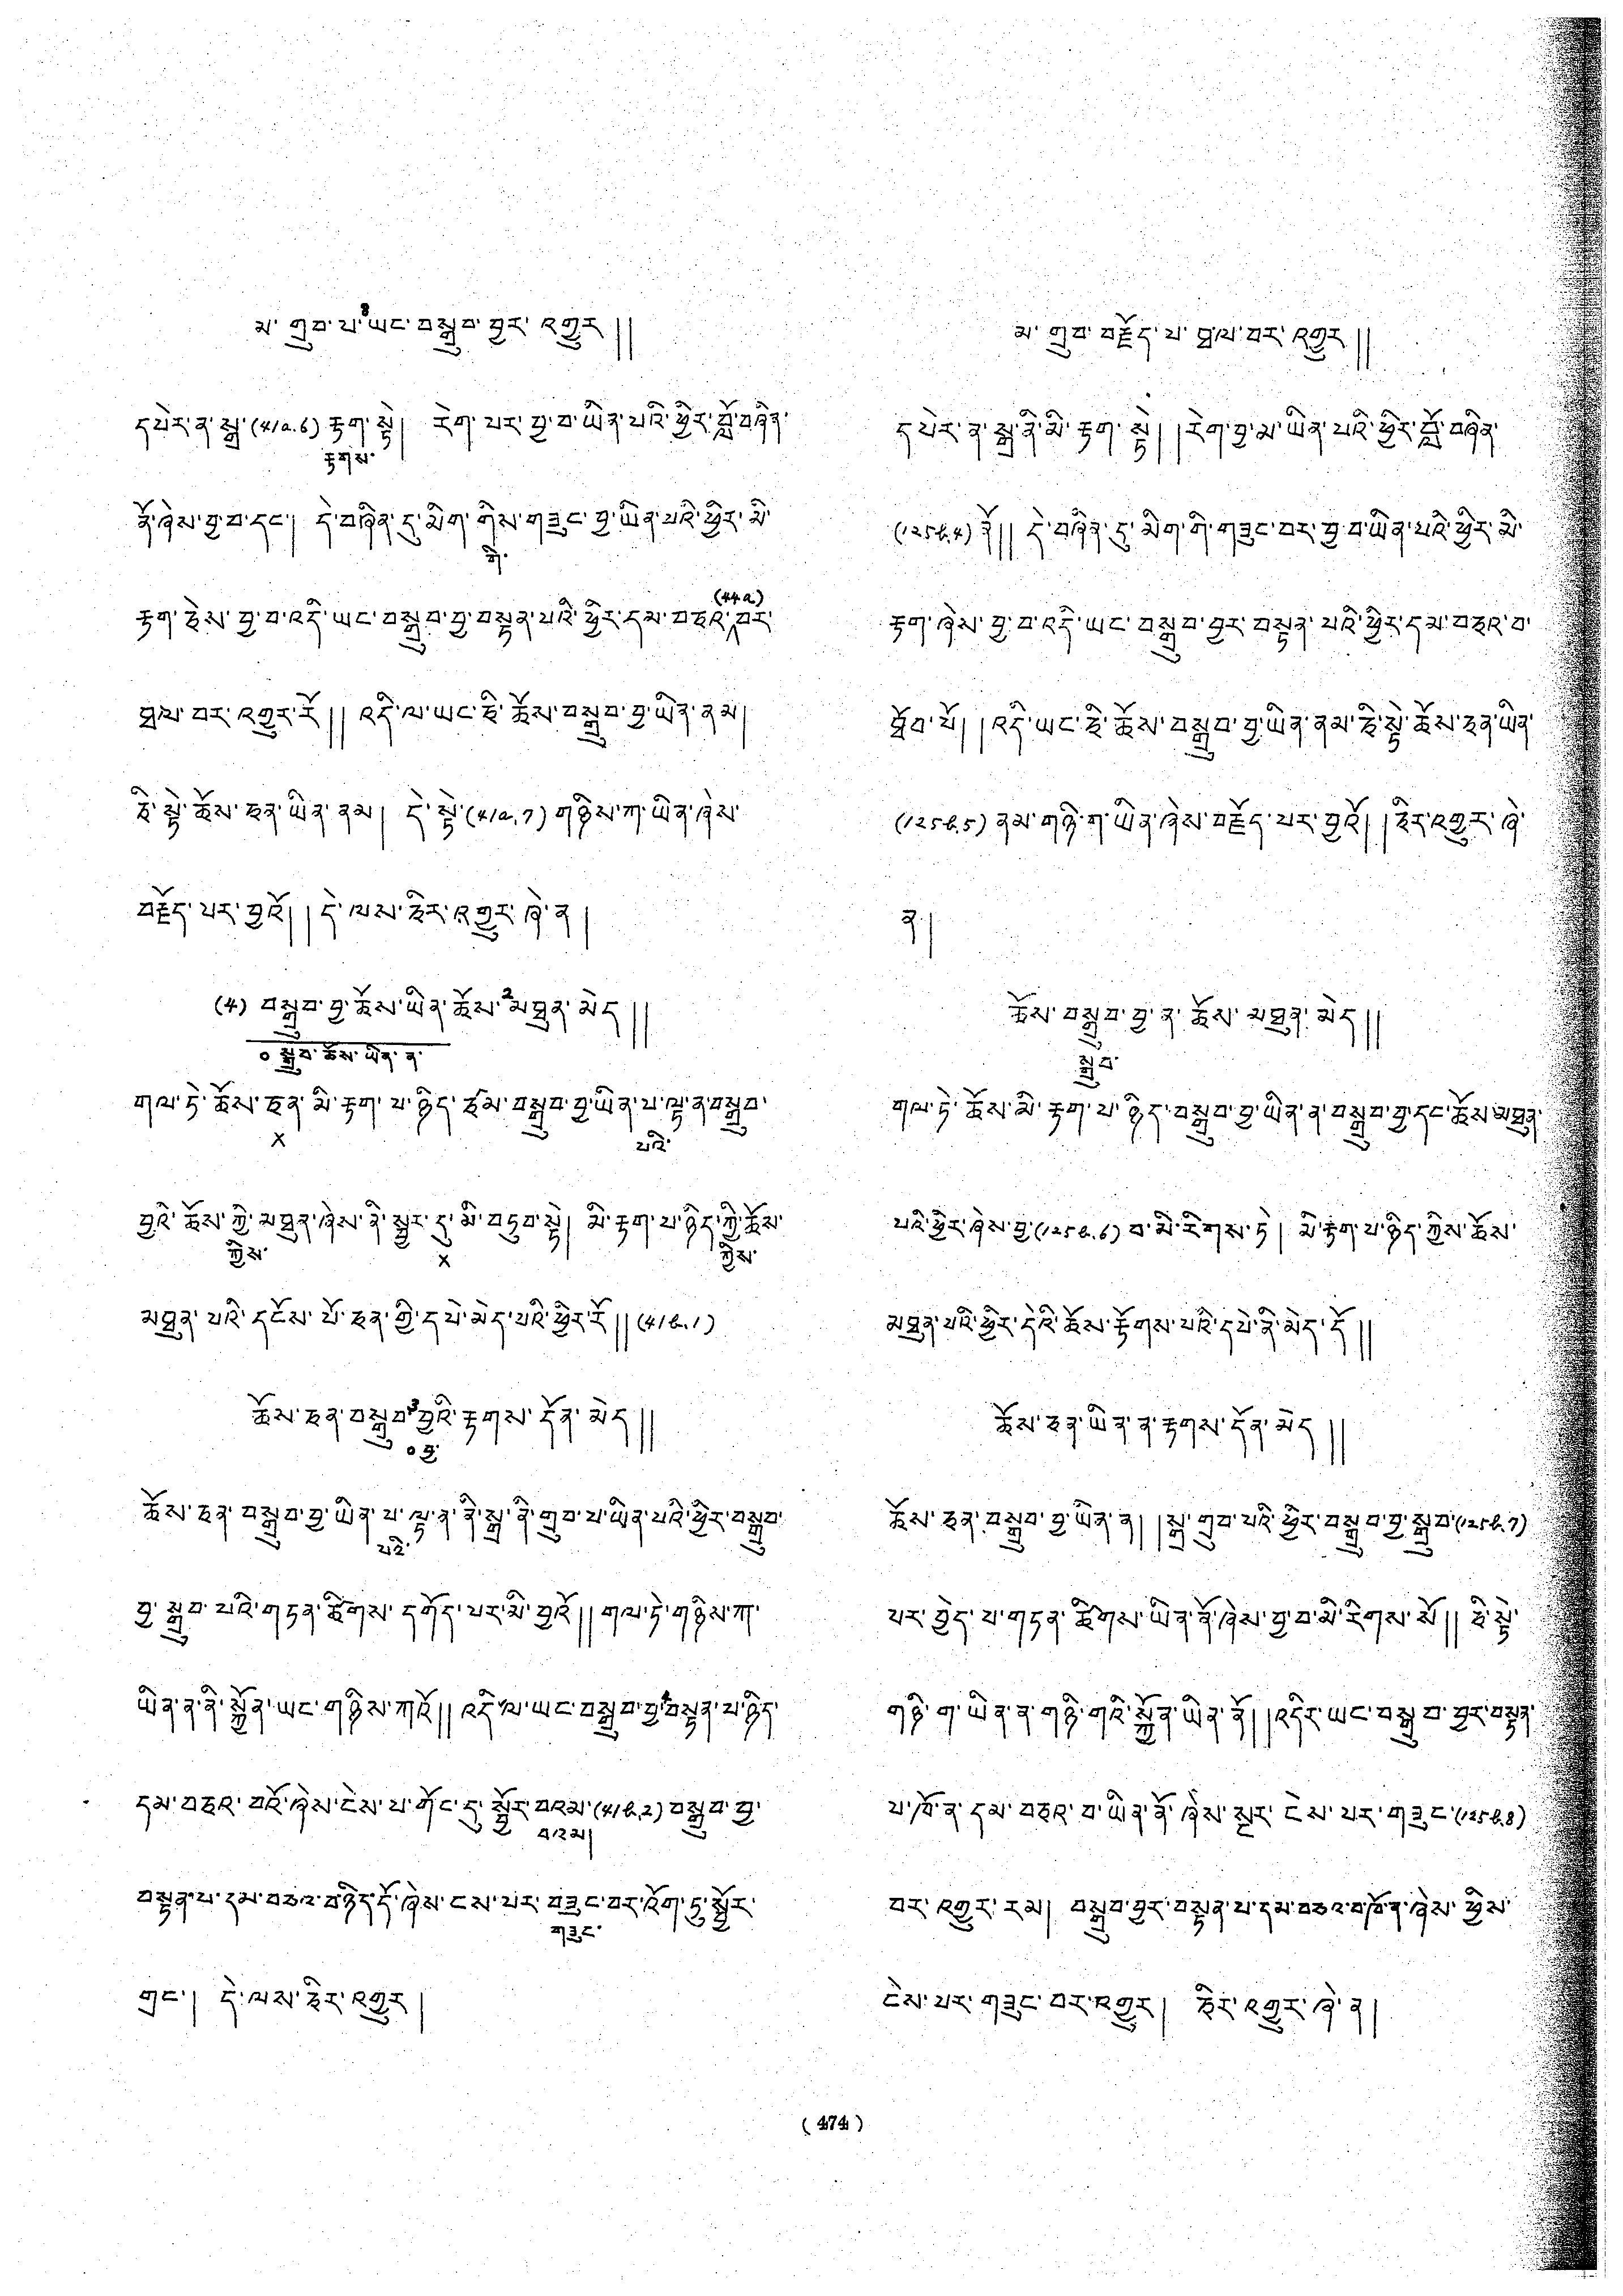 མ་ གྲུབ་ པ་8ཡང་ བསྒྲུབ་ བྱར་ འགྱུར ||
དཔེར་ན་སྒྲ་(41a.6) རྟག་སྟེ| རེག་ པར་ བྱ་བ་ཡིན་པའི་ཕྱིར་བློ་བཞིན་
རྟགས་
ནོ་ཞེས་བྱ་བ་དང་| དེ་བཞིན་དུ་མིག་གིས་གཟུང་བྱ་ཡིན་པའི་ཕྱིར་མི་
གི་
(44a)
རྟག་ཅེས་བྱ་བ་འདི་ཡང་བསྒྲུབ་བྱ་བསྟན་པའི་ཕྱིར་དམ་བཅའ་བར་
ཐལ་བར་འགྱུར་རོ|| འདི་ལ་ཡང་ཅི་ཆོས་བསྒྲུབ་བྱ་ཡིན་ནམ|
ཅི་སྟེ་ཆོས་ཅན་ཡིན་ནམ| དེ་སྟེ་(41a.7) གཉིས་ཀ་ཡིན་ཞེས་
བརྗོད་པར་བྱའོ|| དེ་ལས་ཅིར་འགྱུར་ཞེ་ན|
(4) བསྒྲུབ་བྱ་ཆོས་ཡིན་ཆོས་2མཐུན་མེད||
० སྒྲུབ་ཆོས་ཡིན་ན་
གལ་ཏེ་ཆོས་ཅན་མི་རྟག་པ་ཉིད་ཙམ་བསྒྲུབ་བྱ་ཡིན་པ་ལྟ་ན་བསྒྲུབ་
x པའི་
བྱའི་ཆོས་ཀྱི་མཐུན་ཞེས་ནི་སྦྱར་དུ་མི་བཏུབ་སྟེ| མི་རྟག་པ་ཉིད་ཀྱི་ཆོས་
ཀྱིས་ x ཀྱིས་
མཐུན་པའི་དངོས་པོ་ཅན་གྱི་དཔེ་མེད་པའི་ཕྱིར་རོ||(41b.1)
ཆོས་ཅན་བསྒྲུབ་3བྱའི་རྟགས་དོན་མེད||
०བྱ་
ཆོས་ཅན་བསྒྲུབ་བྱ་ཡིན་པ་ལྟ་ན་ནི་སྒྲ་ནི་གྲུབ་པ་ཡིན་པའི་ཕྱིར་བསྒྲུབ་
པའི་
བྱ་སྒྲུབ་པའི་གཏན་ཚིགས་དགོད་པར་མི་བྱའོ||གལ་ཏེ་གཉིས་ཀ་
ཡིན་ན་ནི་སྐྱོན་ཡང་གཉིས་ཀའོ||འདི་ལ་ཡང་བསྒྲུབ་བྱ་4བསྟན་པ་ཉིད་
དམ་བཅའ་བའོ་ཞེས་ངེས་པ་གོང་དུ་སྦྱོར་བའམ་(41b.2)བསྒྲུབ་བྱ་
བའམ|
བསྟན་པ་དམ་བཅའ་བ་ཉིད་དོ་ཞེས་ངས་པར་བཟུང་བར་འོག་ཏུ་སྦྱོར་
གཟུང་
གྲང་| དེ་ལས་ཅིར་འགྱུར|
མ་གྲུབ་བརྗོད་པ་ཐལ་བར་འགྱུར||
དཔེར་ན་སྒྲ་ནི་མི་རྟག་སྟེ||རེག་བྱ་མ་ཡིན་པའི་ཕྱིར་བློ་བཞིན་
(125b.4) ནོ|| དེ་བཞིན་དུ་མིག་གི་གཟུང་བར་བྱ་བ་ཡིན་པའི་ཕྱིར་མི་
རྟག་ཞེས་བྱ་བ་འདི་ཡང་བསྒྲུབ་བྱར་བསྟན་པའི་ཕྱིར་དམ་བཅའ་བ་
ཐོབ་པོ||འདི་ཡང་ཅི་ཆོས་བསྒྲུབ་བྱ་ཡིན་ནམ་ཅི་སྟེ་ཆོས་ཅན་ཡིན་
(125b.5) ནམ་གཉི་ག་ཡིན་ཞེས་བརྗོད་པར་བྱའོ||ཅིར་འགྱུར་ཞེ་
ན|
ཆོས་བསྒྲུབ་བྱ་ན་ཆོས་མཐུན་མེད||
སྒྲུབ་
གལ་ཏེ་ཆོས་མི་རྟག་པ་ཉིད་བསྒྲུབ་བྱ་ཡིན་ན་བསྒྲུབ་བྱ་དང་ཆོས་མཐུན་
པའི་ཕྱིར་ཞེས་བྱ་(125b.6)བ་མི་རིགས་ཏེ| མི་རྟག་པ་ཉིད་ཀྱིས་ཆོས་
མཐུན་པའི་ཕྱིར་དེའི་ཆོས་རྟོགས་པའི་དཔེ་ནི་མེད་དོ||
ཆོས་ཅན་ཡིན་ན་རྟགས་དོན་མེད||
ཆོས་ཅན་བསྒྲུབ་བྱ་ཡིན་ན||སྒྲ་གྲུབ་པའི་ཕྱིར་བསྒྲུབ་བྱ་སྒྲུབ་(125b.7)
པར་བྱེད་པ་གཏན་ཚིགས་ཡིན་ནོ་ཞེས་བྱ་བ་མི་རིགས་སོ||ཅི་སྟེ་
གཉི་ག་ཡིན་ན་གཉི་གའི་སྐྱོན་ཡིན་ནོ||འདིར་ཡང་བསྒྲུབ་བྱར་བསྟན་
པ་ཁོ་ན་དམ་བཅའ་བ་ཡིན་ནོ་ཞེས་སྔར་ངེས་པར་གཟུང་(125b.8)
བར་འགྱུར་རམ| བསྒྲུབ་བྱར་བསྟན་པ་དམ་བཅའ་བ་ཁོ་ན་ཞེས་ཕྱིས་
ངེས་པར་གཟུང་བར་འགྱུར| ཅིར་འགྱུར་ཞེ་ན|
(474)